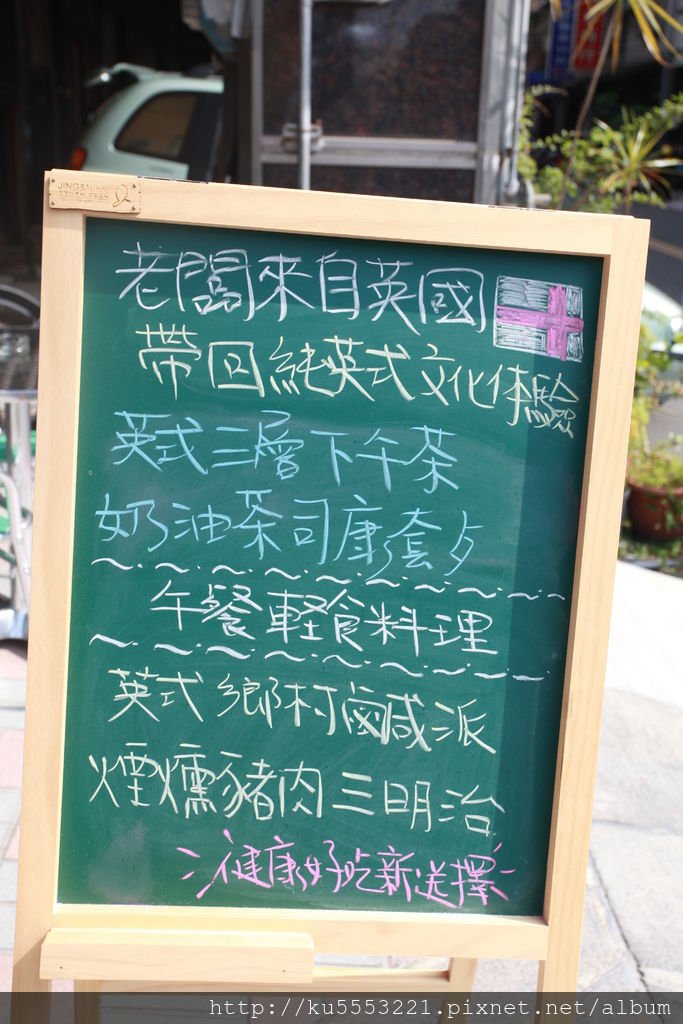 JING&NING
老闆來自英國
帶回純英式文化体驗
英式三層下午茶
奶油茶司康套歺
午餐軽食料理
英式鄉村鹹派
煙燻豬肉三明治
健康好吃新選擇
http://ku5553221.pixnet.net/album